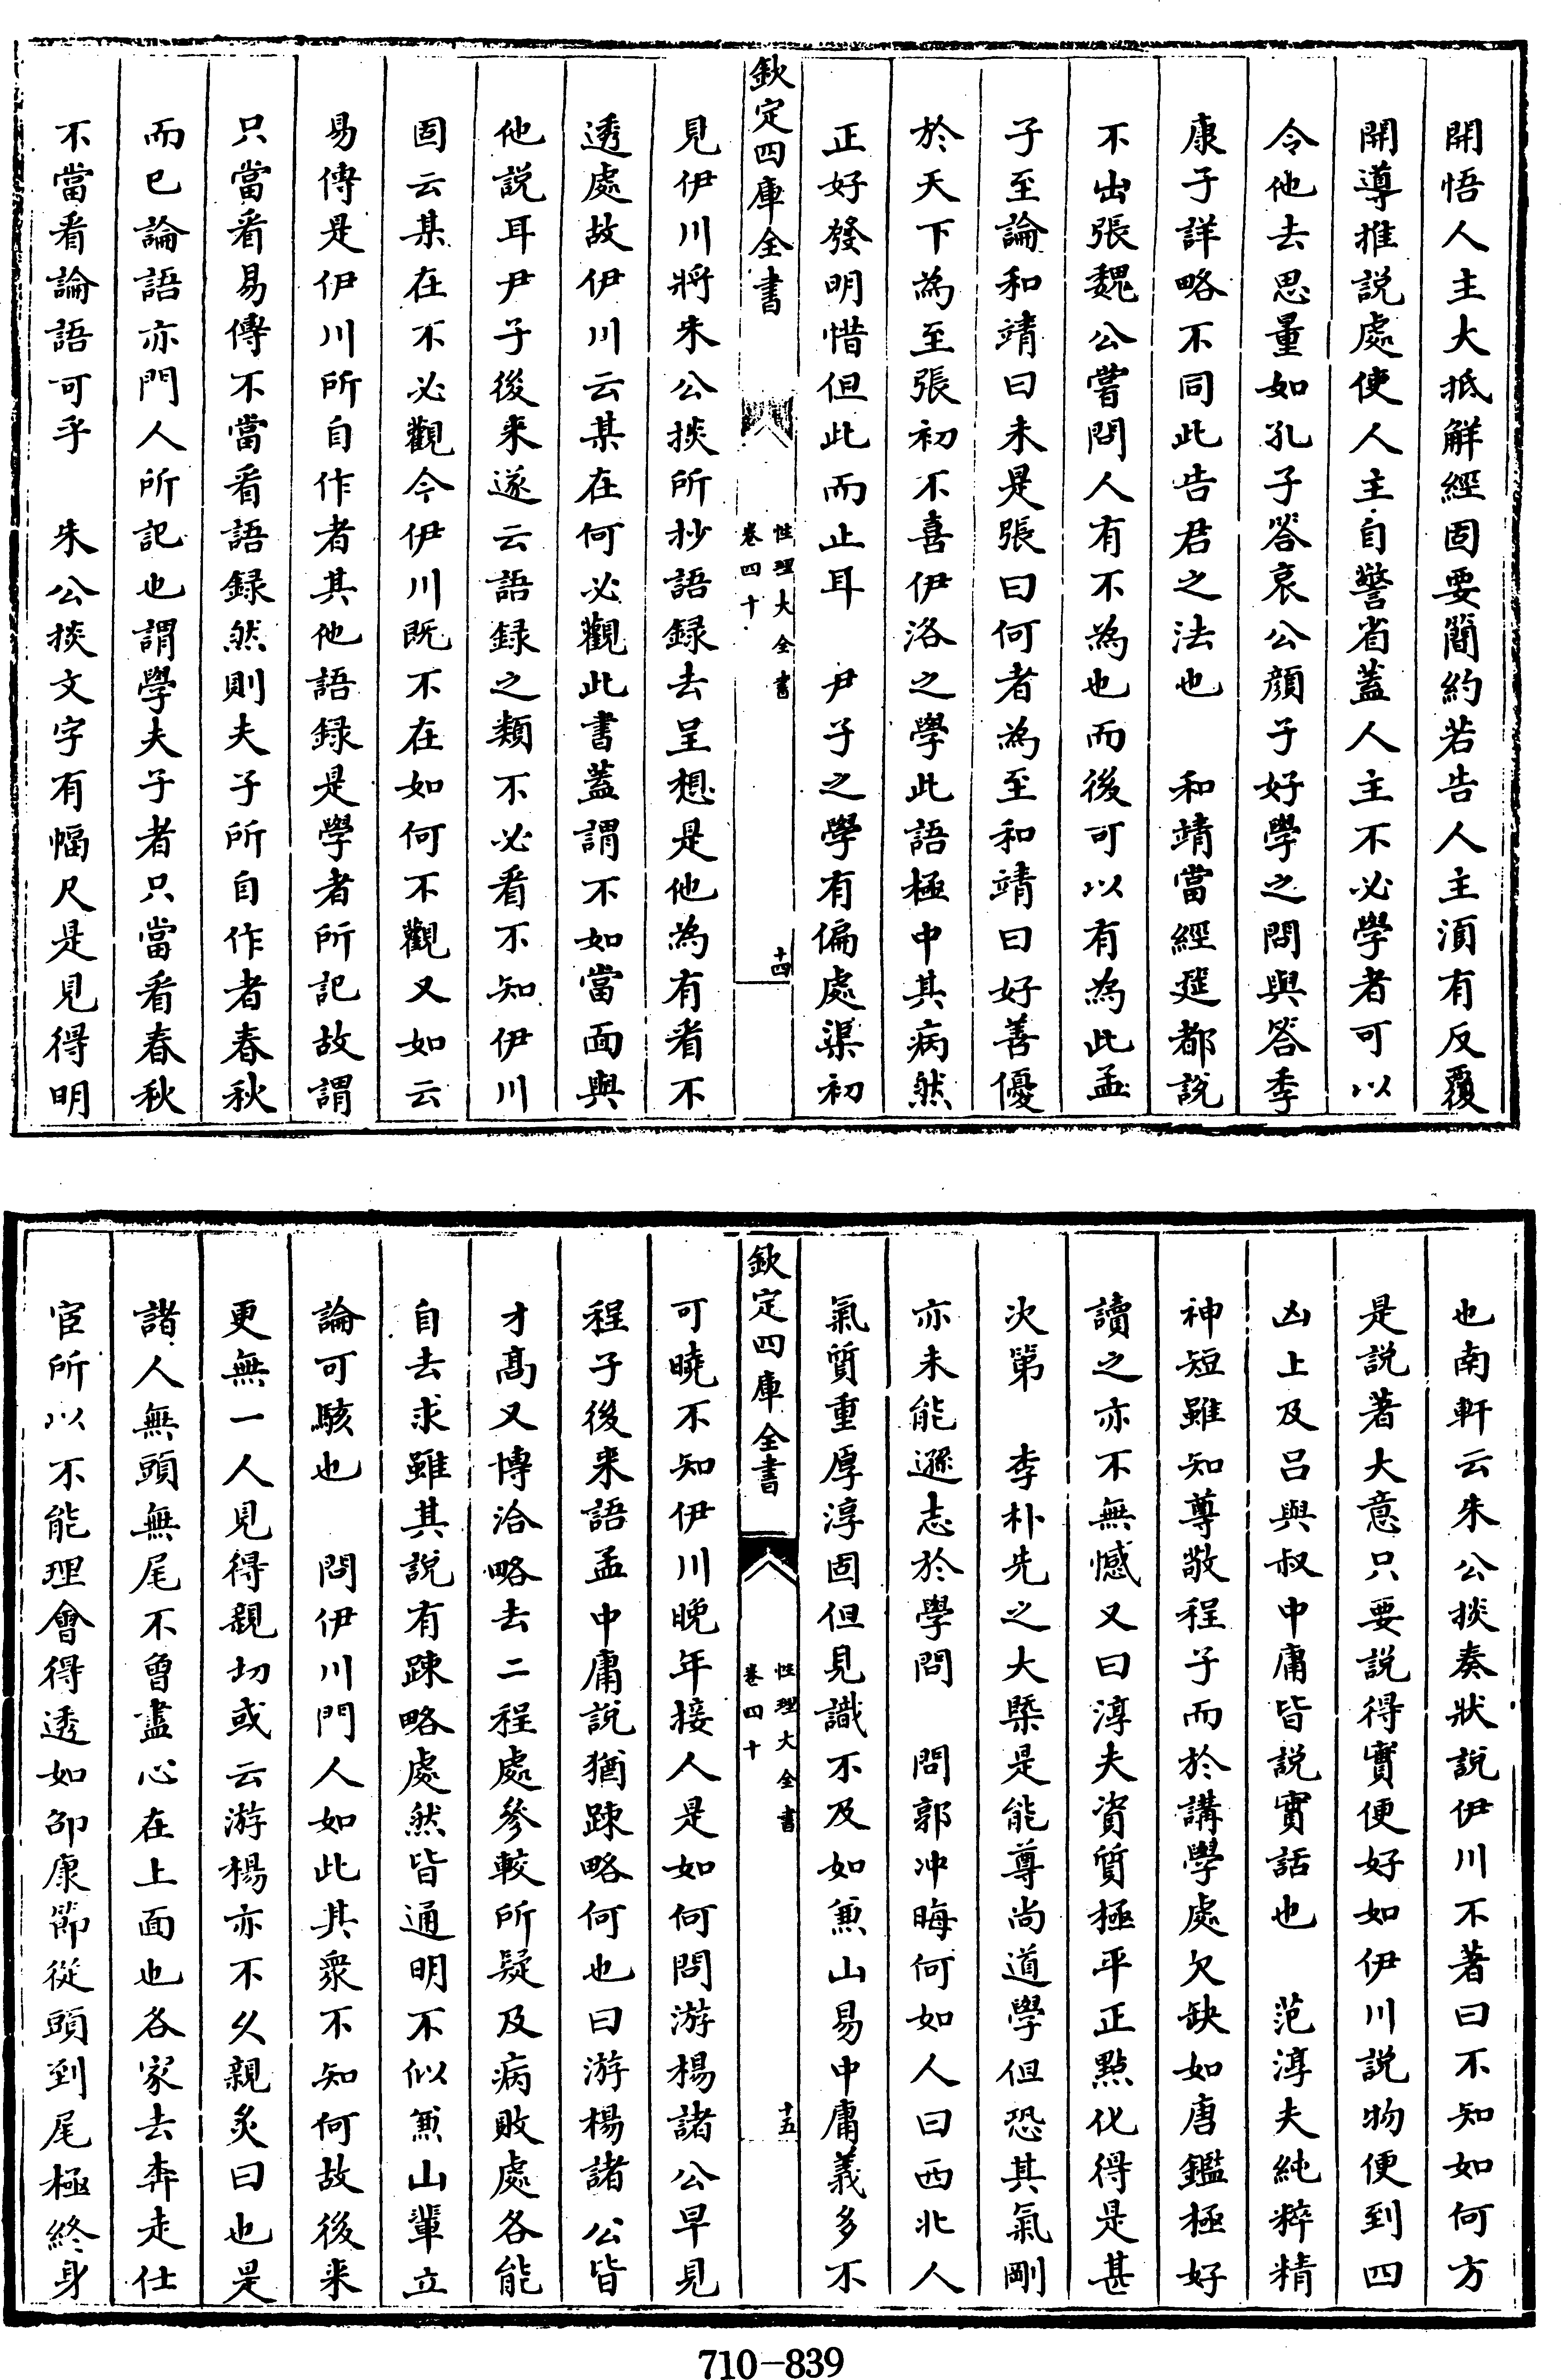 開悟人主大抵解經固要簡約若告人主須有反覆
開導推説處使人主自警省蓋人主不必學者可以
令他去思量如孔子答哀公顔子好學之問與答季
康子詳略不同此告君之法也　和靖當經筵都説
不出張魏公嘗問人有不為也而後可以有為此孟
子至論和靖曰未是張曰何者為至和靖曰好善優
於天下為至張初不喜伊洛之學此語極中其病然
正好發明惜但此而止耳　尹子之學有偏處渠初
欽定四庫全書
性理大全書
卷四十
十四
見伊川將朱公掞所抄語録去呈想是他為有看不
透處故伊川云某在何必觀此書蓋謂不如當面與
他説耳尹子後来遂云語録之類不必看不知伊川
固云某在不必觀今伊川既不在如何不觀又如云
易傳是伊川所自作者其他語録是學者所記故謂
只當看易傳不當看語録然則夫子所自作者春秋
而已論語亦門人所記也謂學夫子者只當看春秋
不當看論語可乎　朱公掞文字有幅尺是見得明
也南軒云朱公掞奏狀説伊川不著曰不知如何方
是説著大意只要説得實便好如伊川説物便到四
凶上及吕與叔中庸皆説實話也　范淳夫純粹精
神短雖知尊敬程子而於講學處欠缺如唐鑑極好
讀之亦不無憾又曰淳夫資質極平正點化得是甚
次第　李朴先之大槩是能尊尚道學但恐其氣剛
亦未能遜志於學問　問郭冲晦何如人曰西北人
氣質重厚淳固但見識不及如兼山易中庸義多不
欽定四庫全書
性理大全書
卷四十
十五
可曉不知伊川晩年接人是如何問游楊諸公早見
程子後来語孟中庸説猶踈略何也曰游楊諸公皆
才髙又博洽略去二程處參較所疑及病敗處各能
自去求雖其説有踈略處然皆通明不似兼山輩立
論可駭也　問伊川門人如此其衆不知何故後来
更無一人見得親切或云游楊亦不久親炙曰也是
諸人無頭無尾不曾盡心在上面也各家去奔走仕
宦所以不能理會得透如邵康節從頭到尾極終身
710-839